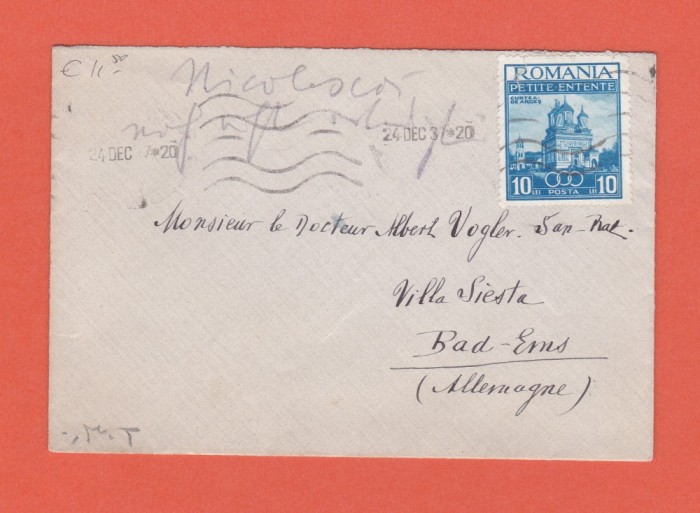 € 11.50
Nicolescói
24 DEC 7 *20
24 DEC 37 *20
ROMANIA
PETITE ENTENTE
CURTEA-
DE ARGEȘ
10 LEI POSTA LEI 10
Monsieur le Docteur Albert Vogler. San-Rat.
Villa Siesta
Bad-Ems
(Allemagne)